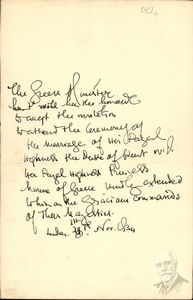 The Greek Minister
has the honour
to accept the invitation
to attend the Ceremony of
the Marriage of His Royal
Highness the Duke of Kent with
Her Royal Highness Princess
Marina of Greece kindly extended
to him on the Gracious Commands
of Their Majesties.
London, Nov. 1934